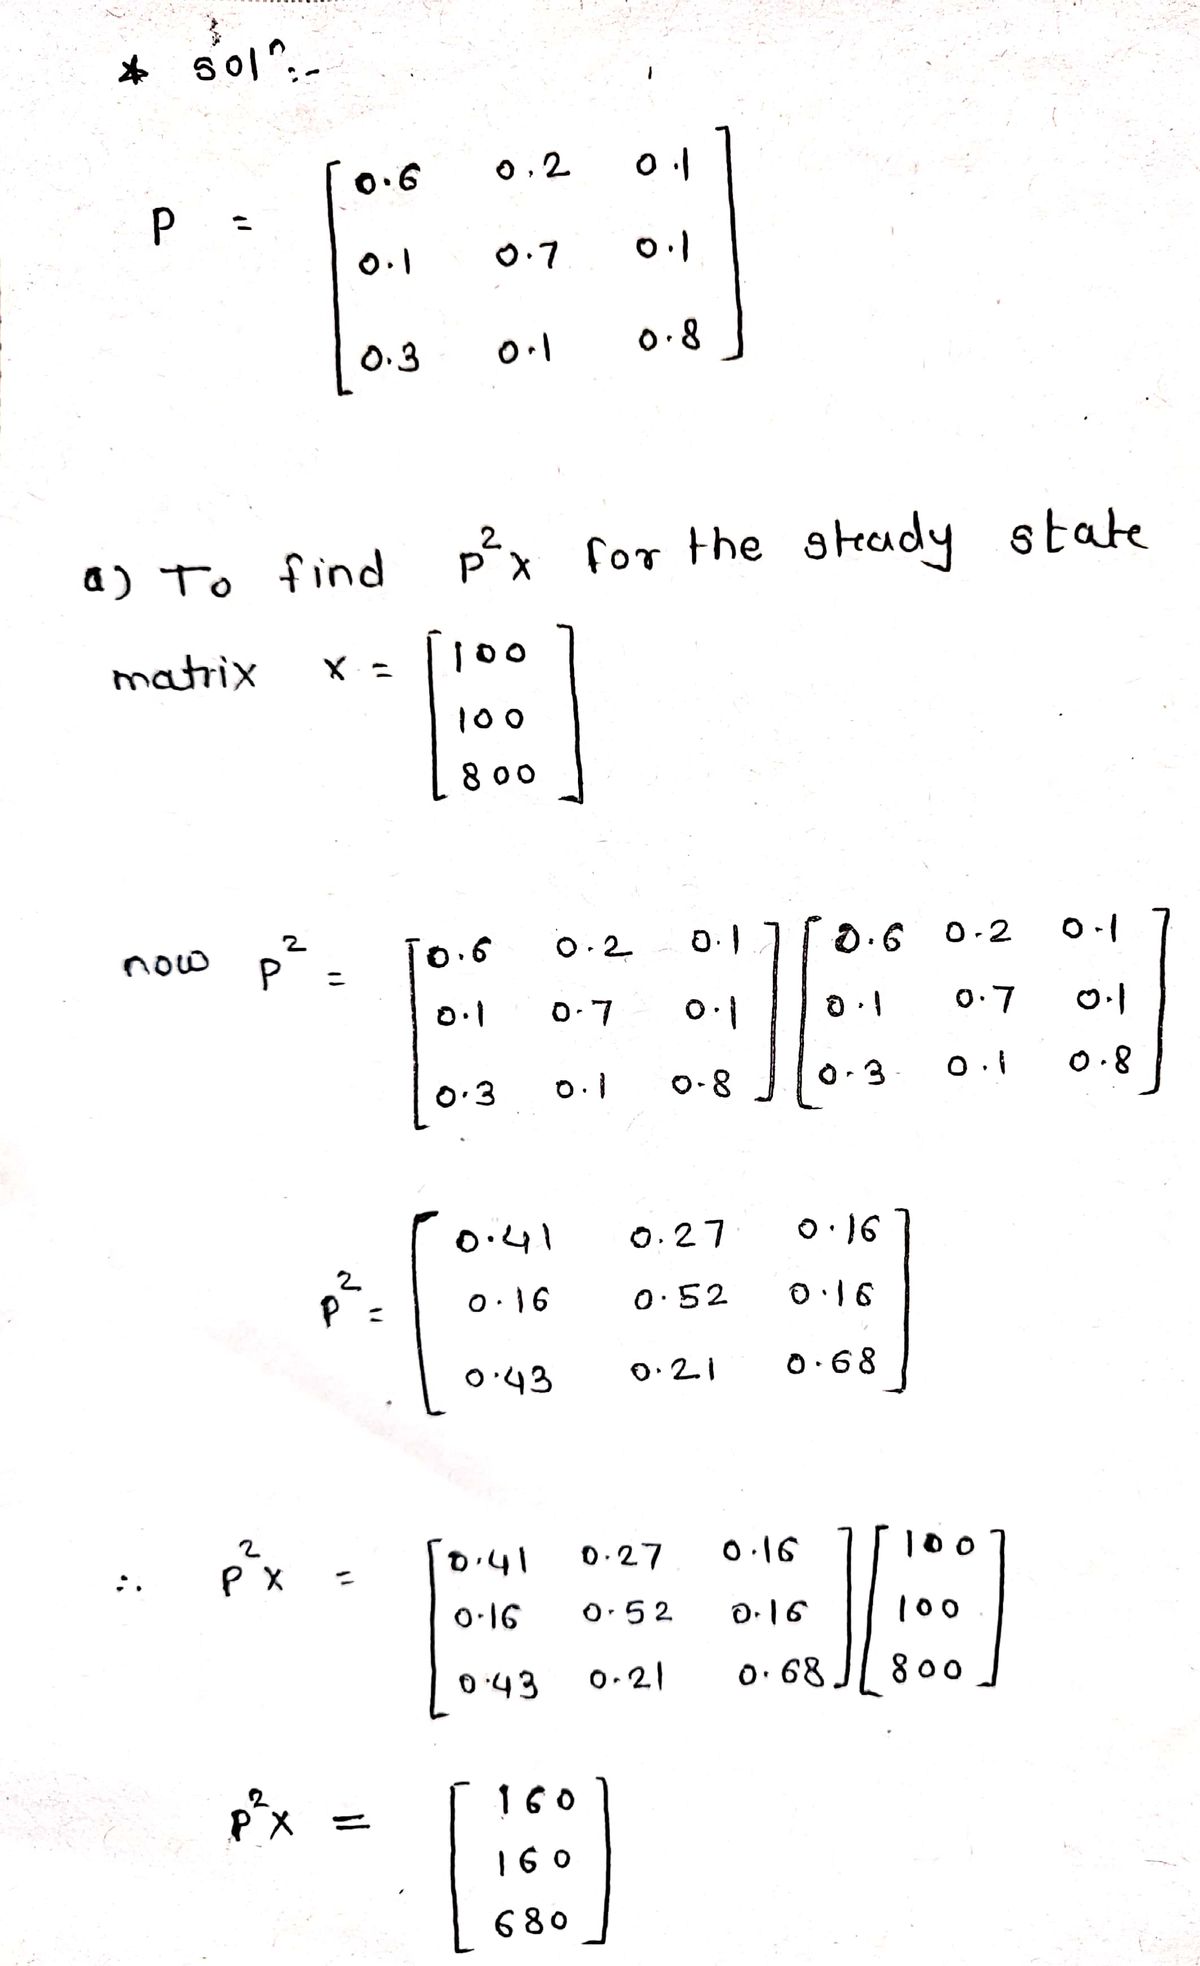 * solⁿ:-
P = [ 0.6 0.2 0.1
0.1 0.7 0.1
0.3 0.1 0.8 ]
a) To find P²x for the steady state
matrix x = [ 100
100
800 ]
now P² = [ 0.6 0.2 0.1 ] [ 0.6 0.2 0.1 ]
0.1 0.7 0.1 0.1 0.7 0.1
0.3 0.1 0.8 0.3 0.1 0.8
P² = [ 0.41 0.27 0.16
0.16 0.52 0.16
0.43 0.21 0.68 ]
∴ P²x = [ 0.41 0.27 0.16 ] [ 100 ]
0.16 0.52 0.16 100
0.43 0.21 0.68 800
P²x = [ 160
160
680 ]